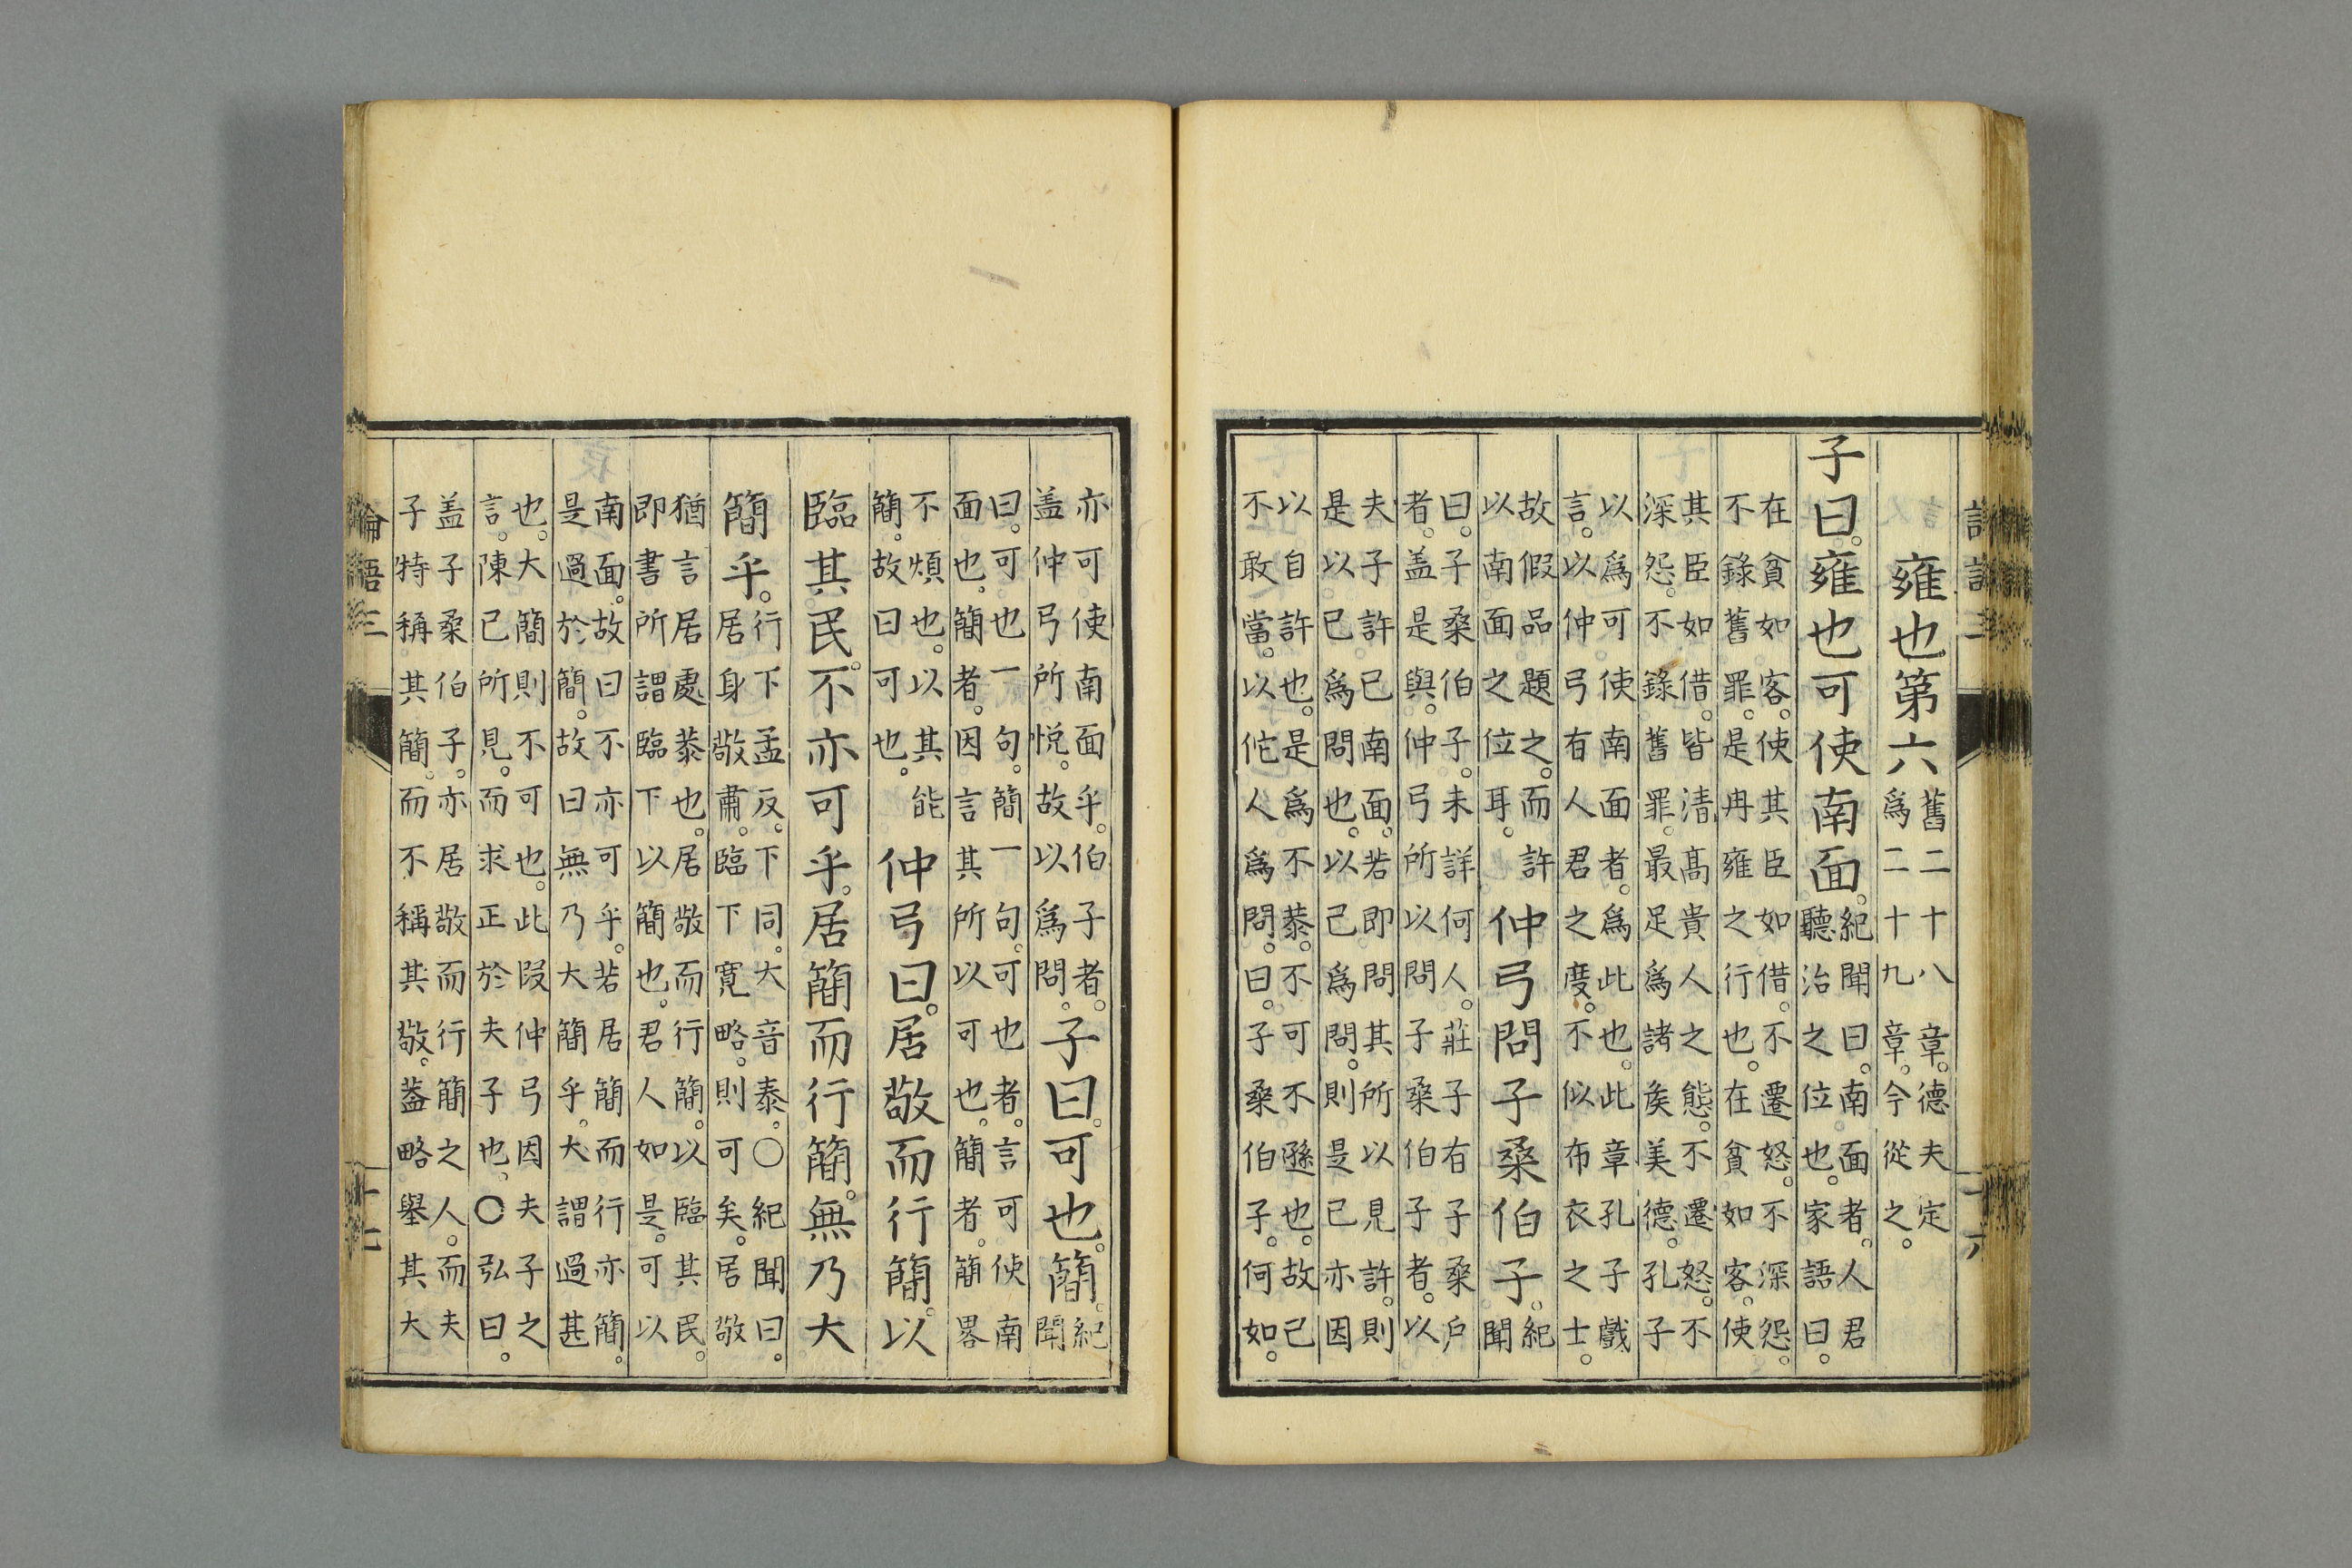 雍也第六
舊二十八章。德夫定
爲二十九章。今從之。
子曰。雍也可使南面。
紀聞曰。南面者。人君
聽治之位也。家語曰。
在貧如客。使其臣如借。不遷怒。不深怨。
不錄舊罪。是冉雍之行也。在貧如客。使
其臣如借。皆清高貴人之態。不遷怒。不
深怨。不錄舊罪。最足爲諸矦美德。孔子
以爲可使南面者。爲此也。此章孔子戲
言。以仲弓有人君之度。不似布衣之士。
故假品題之。而許
以南面之位耳。
仲弓問子桑伯子。
紀
聞
曰。子桑伯子。未詳何人。莊子有子桑戶
者。盖是與。仲弓所以問子桑伯子者。以
夫子許已南面。若即問其所以見許。則
是以已爲問也。以己爲問。則是已亦因
以自許也。是爲不恭。不可不遜也。故己
不敢當。以佗人爲問。曰。子桑伯子。何如。
亦可使南面乎。伯子者。
盖仲弓所悅。故以爲問。
子曰。可也。簡。
紀
聞
曰。可也一句。簡一句。可也者。言可使南
面也。簡者。因言其所以可也。簡者。簡畧
不煩也。以其能
簡。故曰可也。
仲弓曰。居敬而行簡。以
臨其民。不亦可乎。居簡而行簡。無乃大
簡乎。
行下孟反。下同。大音泰。○紀聞曰。
居身敬肅。臨下寬略。則可矣。居敬
猶言居處恭也。居敬而行簡。以臨其民。
即書所謂臨下以簡也。君人如是。可以
南面。故曰不亦可乎。若居簡而行亦簡。
是過於簡。故曰無乃大簡乎。大謂過甚
也。大簡則不可也。此段仲弓因夫子之
言。陳己所見。而求正於夫子也。○弘曰。
盖子桑伯子。亦居敬而行簡之人。而夫
子特稱其簡。而不稱其敬。葢略舉其大
論語三
十七